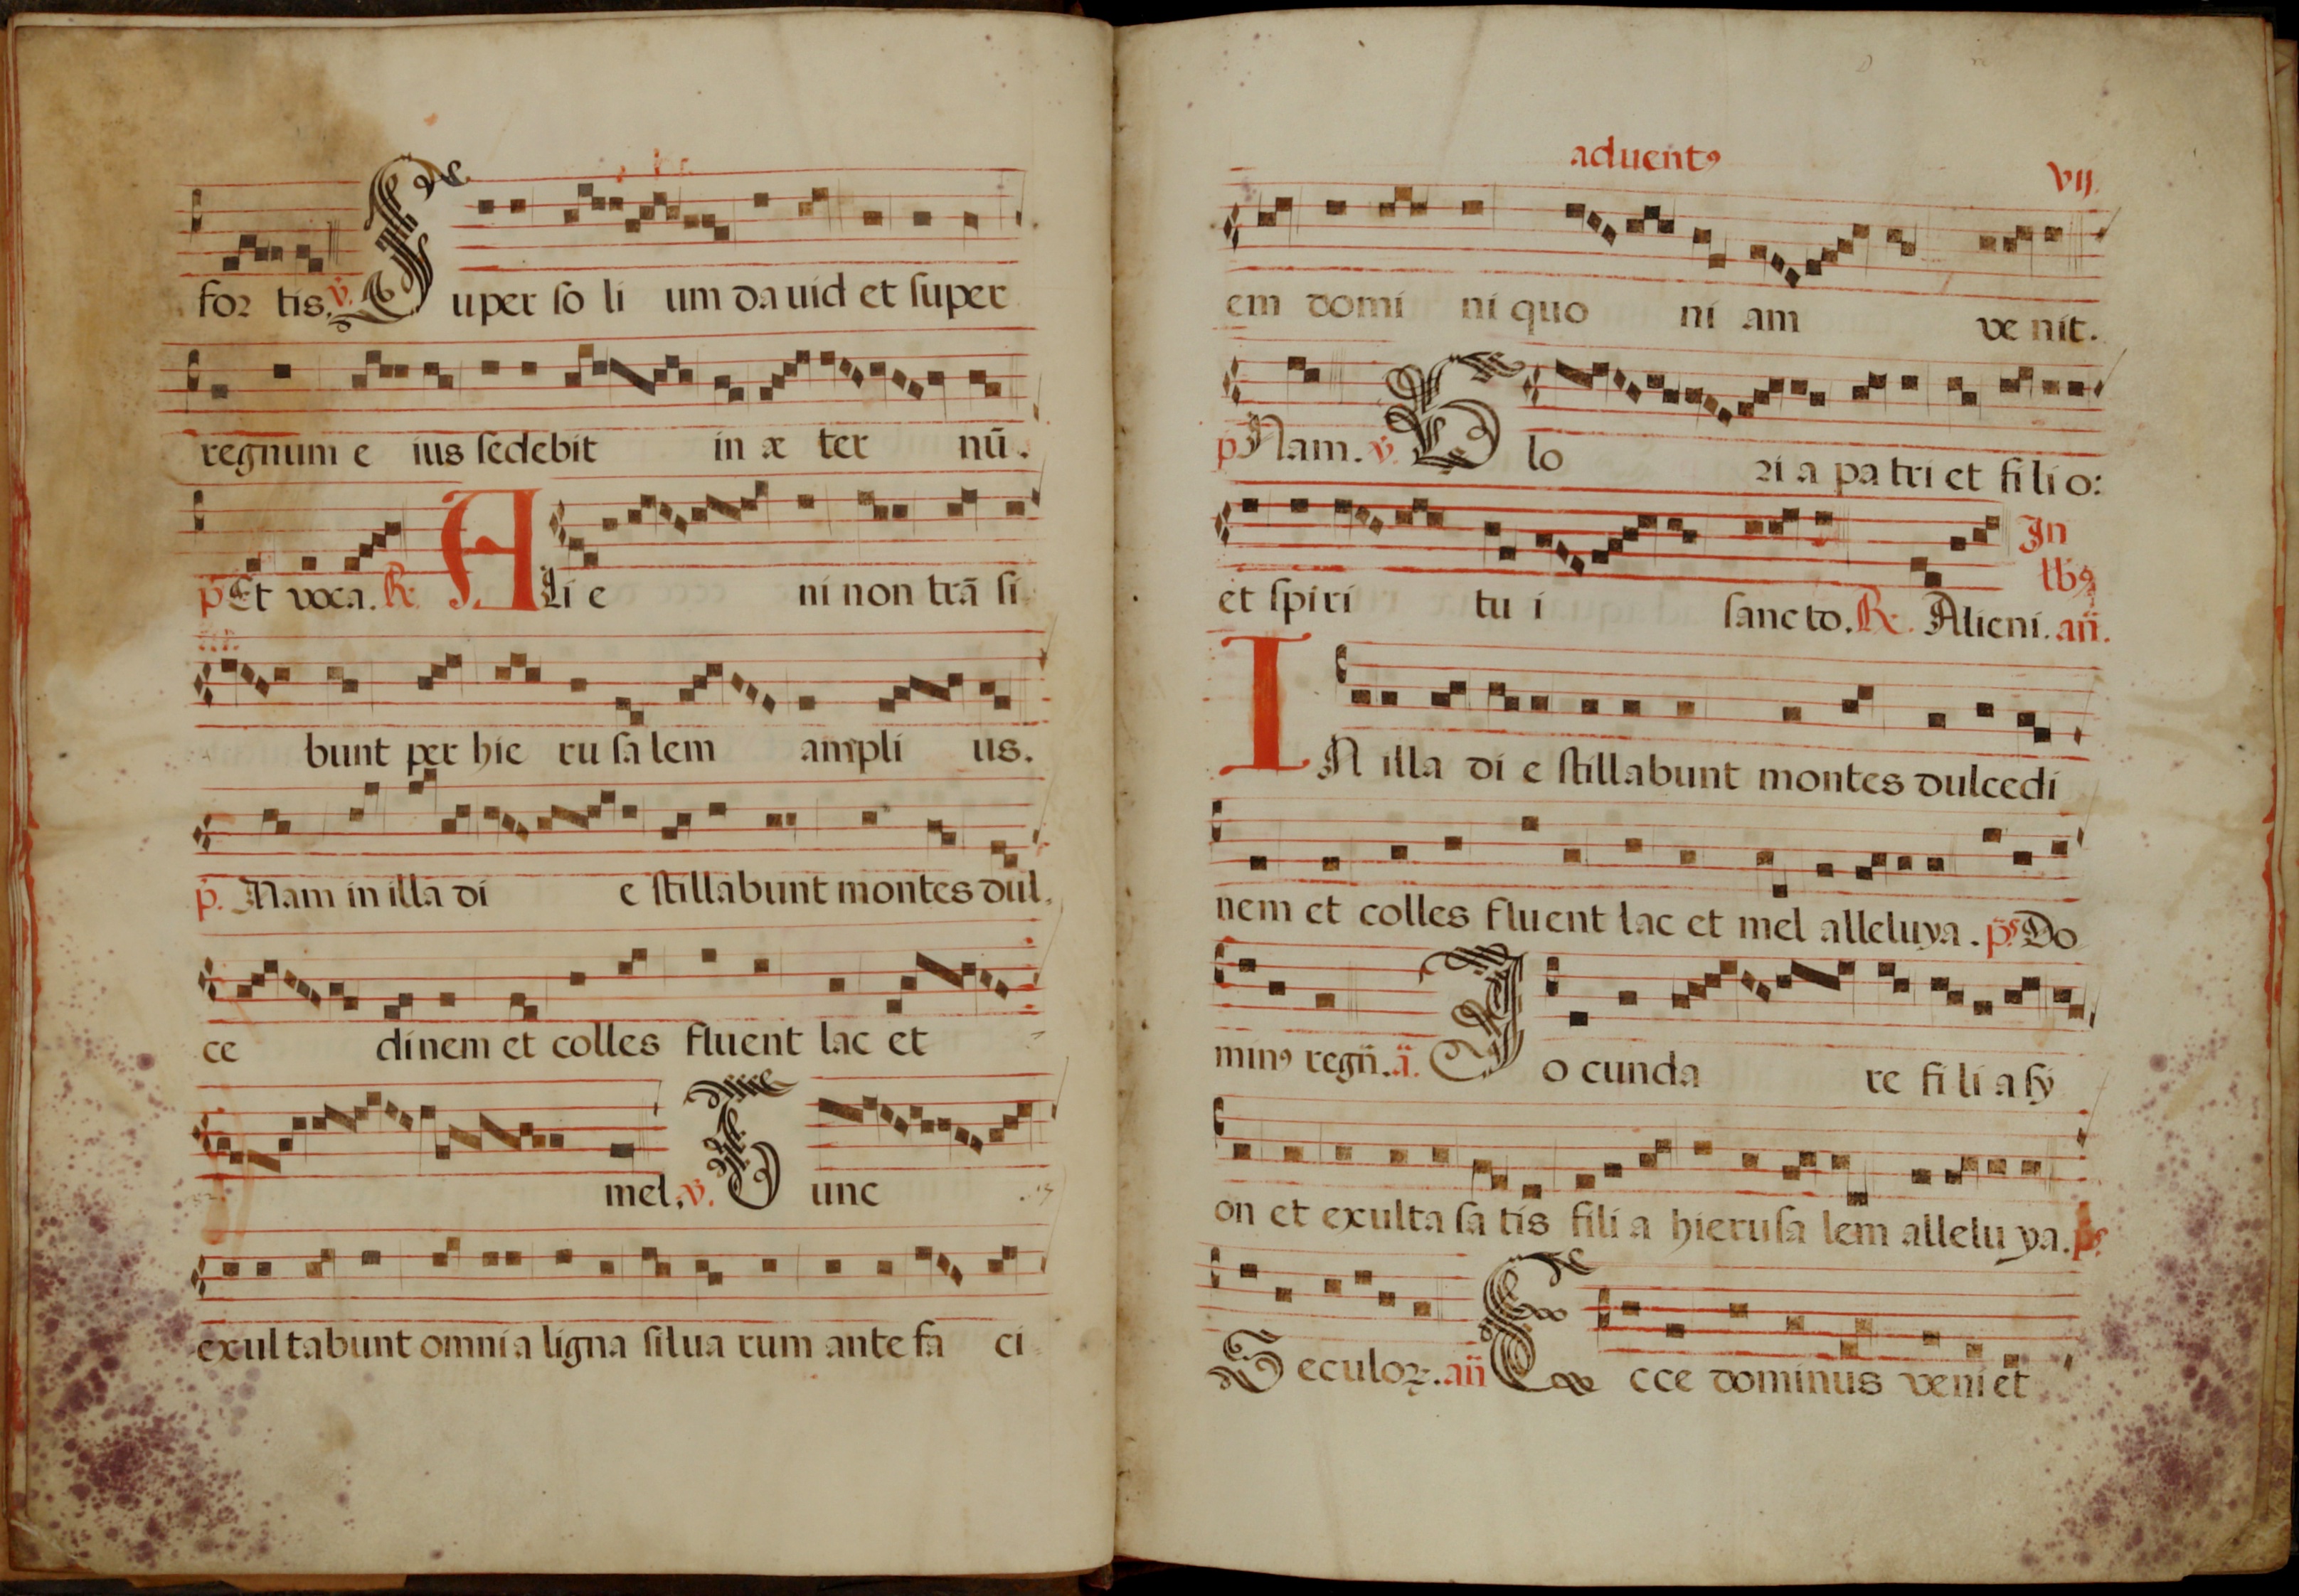 for tis. ℣. Super so li um dauid et super
regnum e ius sedebit in æ ter nū.
p Et voca. ℟. ALi e ni non trā si
bunt per hie ru sa lem ampli us.
p. Nam in illa di e stillabunt montes dul
ce dinem et colles fluent lac et
mel. ℣. Tunc
exultabunt omnia ligna silua rum ante fa ci
aduentꝯ
vij.
em domi ni quo ni am ve nit.
p Nam. ℣. Glo ri a pa tri et fi li o:
et spiri tu i sancto. ℟. Alieni. In lbꝯ an̄.
IN illa di e stillabunt montes dulcedi
nem et colles fluent lac et mel alleluya. ps Do
minꝯ regn̄. ā. Jocunda re fi li a sy
on et exulta sa tis fili a hierusa lem allelu ya. ps
Seculoꝝ. an̄ Ecce dominus veni et